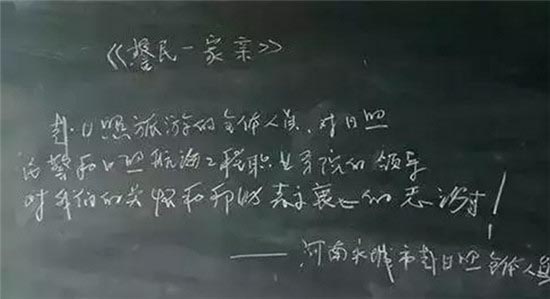 《警民一家亲》
赴日照旅游的全体人员，对日照
民警和日照航海工程职业学院的领导
对我们的关怀和帮助表示衷心的感谢！
——河南永城市赴日照全体人员